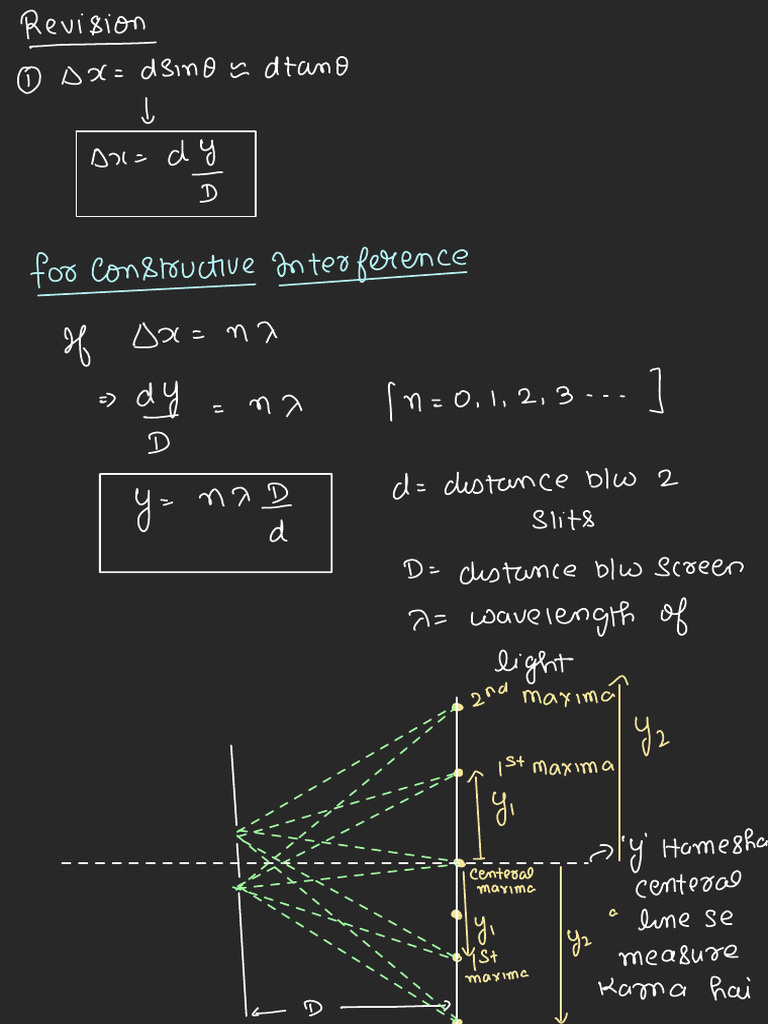 Revision
① Δx = dsinθ ≈ dtanθ
↓
Δx = d y/D
for Constructive Interference
If Δx = nλ
⇒ dy/D = nλ [n = 0, 1, 2, 3 ---]
y = nλ D/d
d = distance b/w 2
slits
D = distance b/w screen
λ = wavelength of
light
2nd maxima
y2
1st maxima
y1
'y' Hamesha
centeral
line se
measure
Karna hai
centeral
maxima
y1
y2
1st
maxima
D